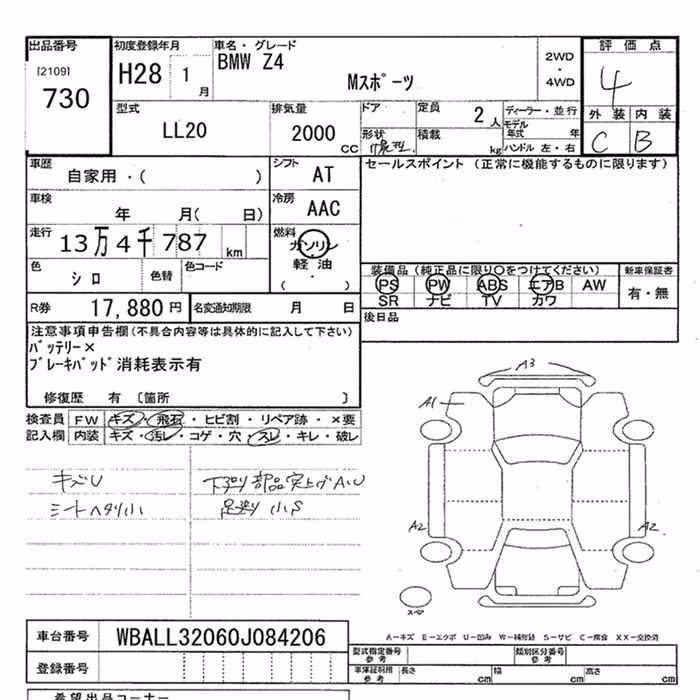 出品番号 初度登録年月 車名・グレード 評価点
[2109] 730 H28 1月 BMW Z4 Mスポーツ 2WD・4WD 4
型式 排気量 ドア 定員 ディーラー・並行 外装 内装
LL20 2000cc 2人 モデル年式 年 C B
形状 積載 kg ハンドル 左・右
車歴 シフト セールスポイント (正常に機能するものに限ります)
自家用・( ) AT
車検 冷房
年 月( 日) AAC
走行 燃料
13万4千787km ガソリン
色 色替 色コード 軽油
シロ ( )
装備品 (純正品に限り○をつけてください) 新車保証書
PS PW ABS エアB AW 有・無
SR ナビ TV カワ
R券 17,880円 名変通知期限 月 日
後日品
注意事項申告欄(不具合内容等は具体的に記入して下さい)
バッテリー×
ブレーキパッド消耗表示有
修復歴 有 [箇所 ]
検査員 FW キズ・飛石・ヒビ割・リペア跡・×要
記入欄 内装 キズ・汚レ・コゲ・穴・スレ・キレ・破レ
キズU 下廻り部品突上げA,U
シートヘタリ小 足廻り小S
A3
A1
A2 A2
スペア
A-キズ E-エクボ U-凹み W-補修跡 S-サビ C-腐食 XX-交換済
車台番号 WBALL32060J084206
型式指定番号 参考 類別区分番号 参考
登録番号 車庫証明用 参考 長さ cm 幅 cm 高さ cm
希望出品コーナー